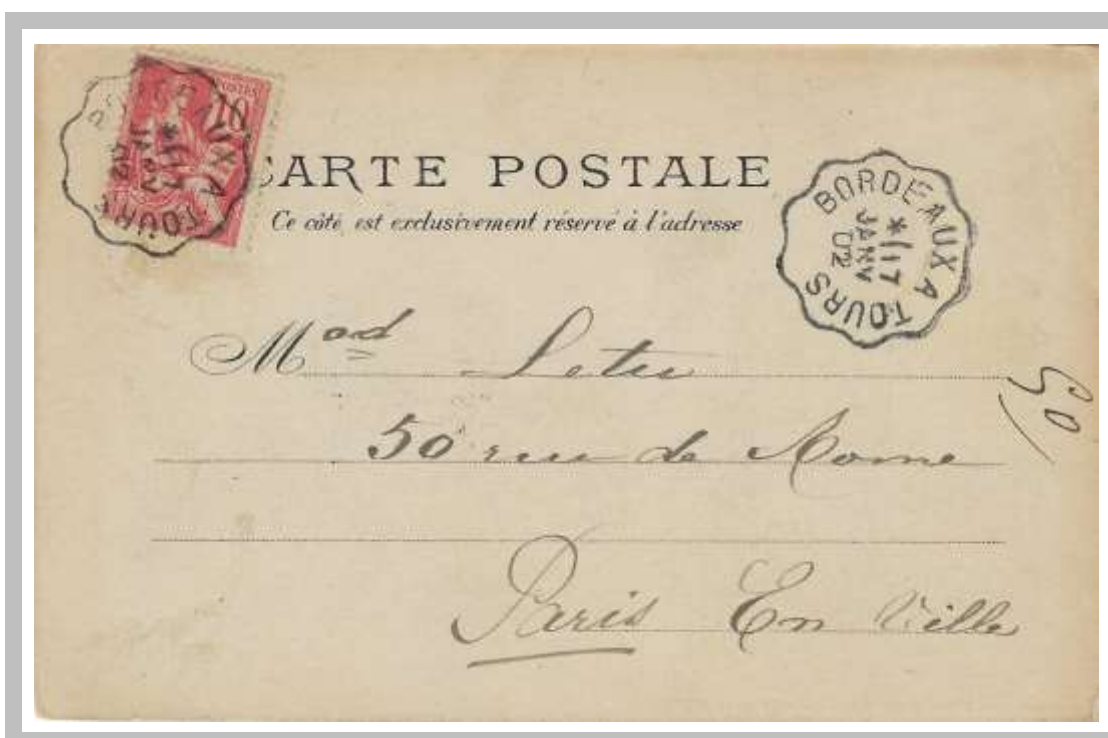 POSTES
10
BORDEAUX A TOURS
*17
JANV
02
CARTE POSTALE
Ce côté est exclusivement réservé à l'adresse
BORDEAUX A TOURS
*17
JANV
02
Mad Letu
50 rue de Rome
Paris En Ville